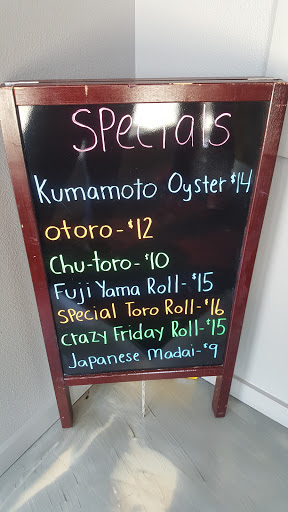 Specials
Kumamoto Oyster $14
otoro - $12
Chu-toro - $10
Fuji Yama Roll - $15
Special Toro Roll - $16
Crazy Friday Roll - $15
Japanese Madai - $9